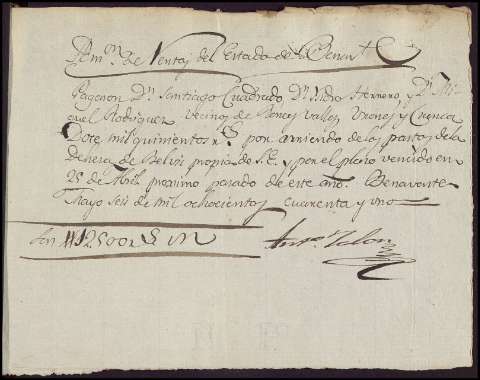 Admon de Rentas del Estado de Benavte
Pagaron Dn Santiago Cuadrado, Dn Ysidro Herrero, y Dn Mi-
guel Rodriguez Vecinos de Roncesvalles Vrones y Cuenca
Dote mil quinientos rs por arriendo de los pastos de la
Dehesa de Belvis propia de S.E. y por el plazo vencido en
25 de Abril proximo pasado de este año. Benavente
Mayo seis de mil ochocientos cuarenta y uno
Son 12500 rs vn Anto